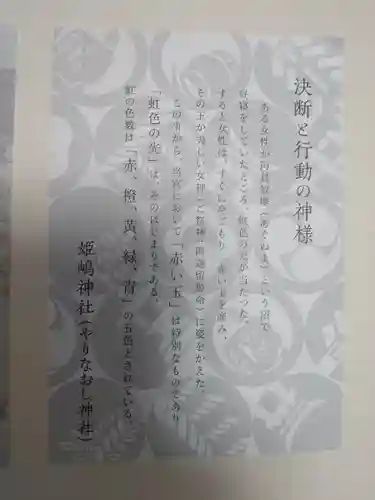 決断と行動の神様
ある女性が阿具奴摩(あぐぬま)という沼で
昼寝をしていたところ、虹色の光が当たった。
すると女性は、すぐにみごもり、赤い玉を産み、
その玉が美しい女神(ご祭神・阿迦留姫命)に姿をかえた。
この事から、当宮において「赤い玉」は特別なものであり
「虹色の光」は、そのはじまりである。
虹の色数は「赤、橙、黄、緑、青」の五色とされている。
姫嶋神社(やりなおし神社)